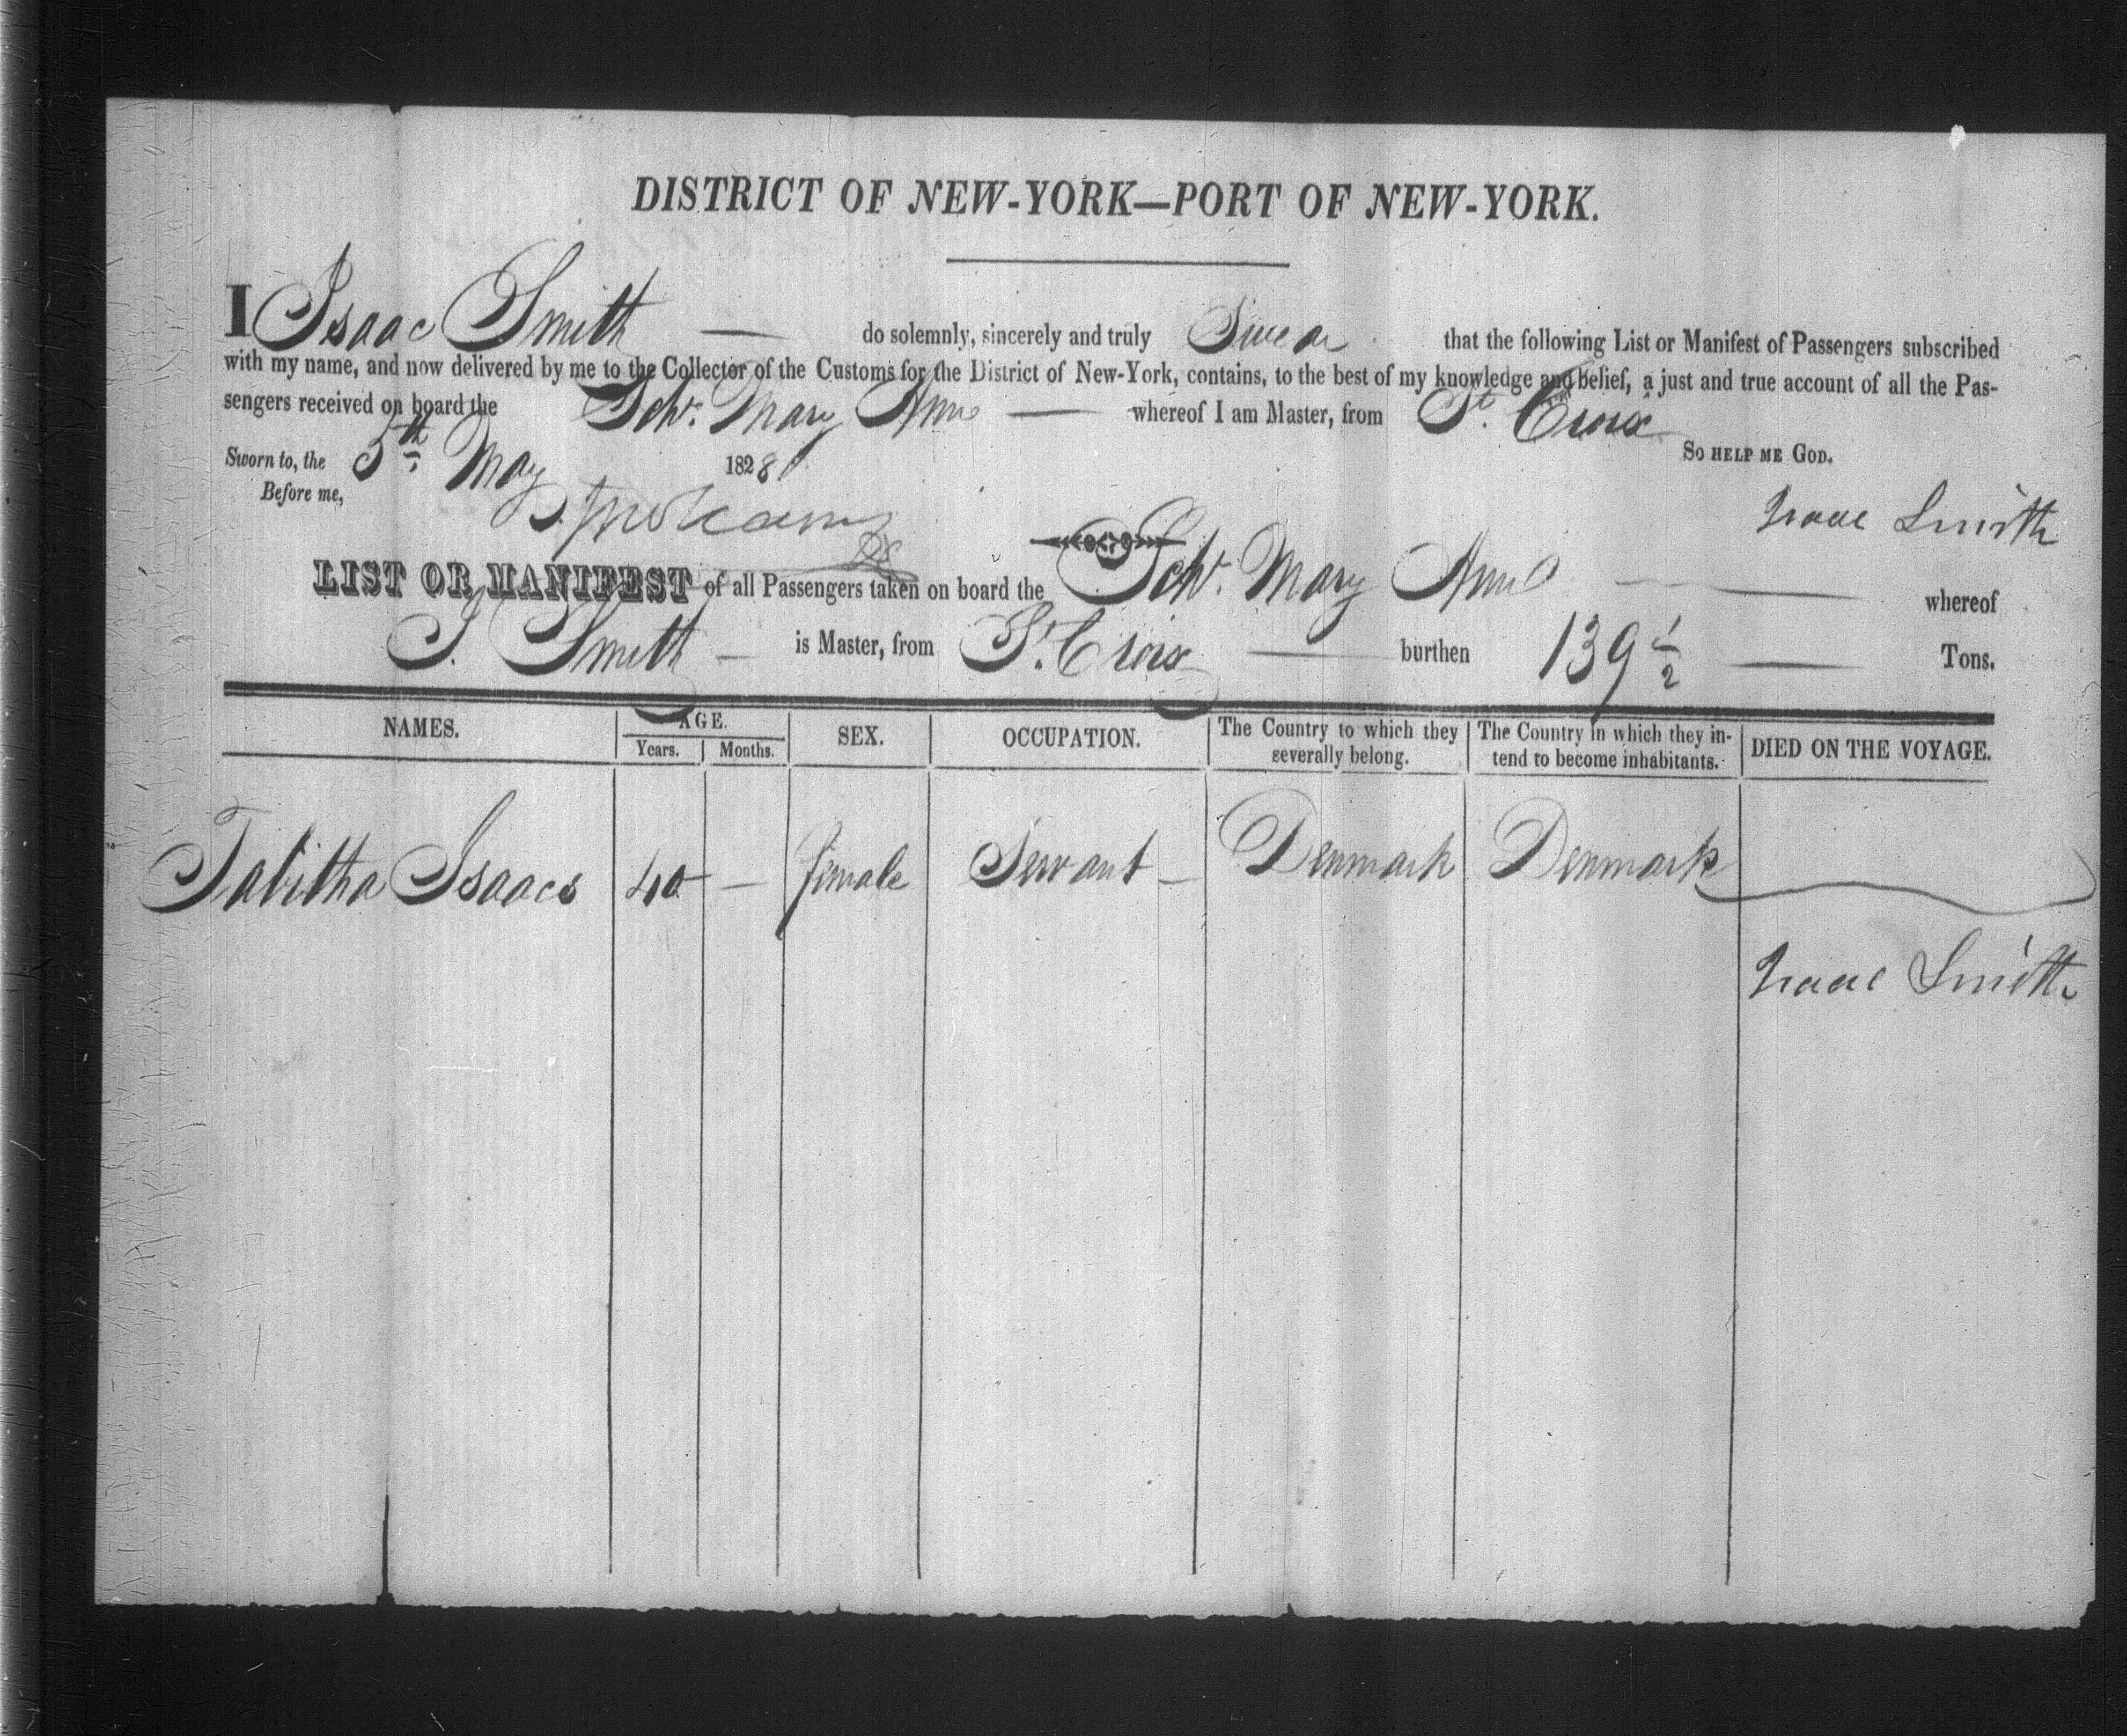 DISTRICT OF NEW-YORK—PORT OF NEW-YORK.
I Isaac Smith — do solemnly, sincerely and truly Swear that the following List or Manifest of Passengers subscribed
with my name, and now delivered by me to the Collector of the Customs for the District of New-York, contains, to the best of my knowledge and belief, a just and true account of all the Pas-
sengers received on board the Schr. Mary Ann — whereof I am Master, from St. Croix
So HELP ME GOD.
Sworn to, the 5th May 1828
Before me,
Isaac Smith
LIST OR MANIFEST of all Passengers taken on board the Schr. Mary Ann — whereof
I. Smith — is Master, from St. Croix — burthen 139 1/2 — Tons.
NAMES. AGE. SEX. OCCUPATION. The Country to which they severally belong. The Country in which they in-tend to become inhabitants. DIED ON THE VOYAGE.
Years. Months.
Tabitha Isaacs 40 — female Servant — Denmark Denmark
Isaac Smith